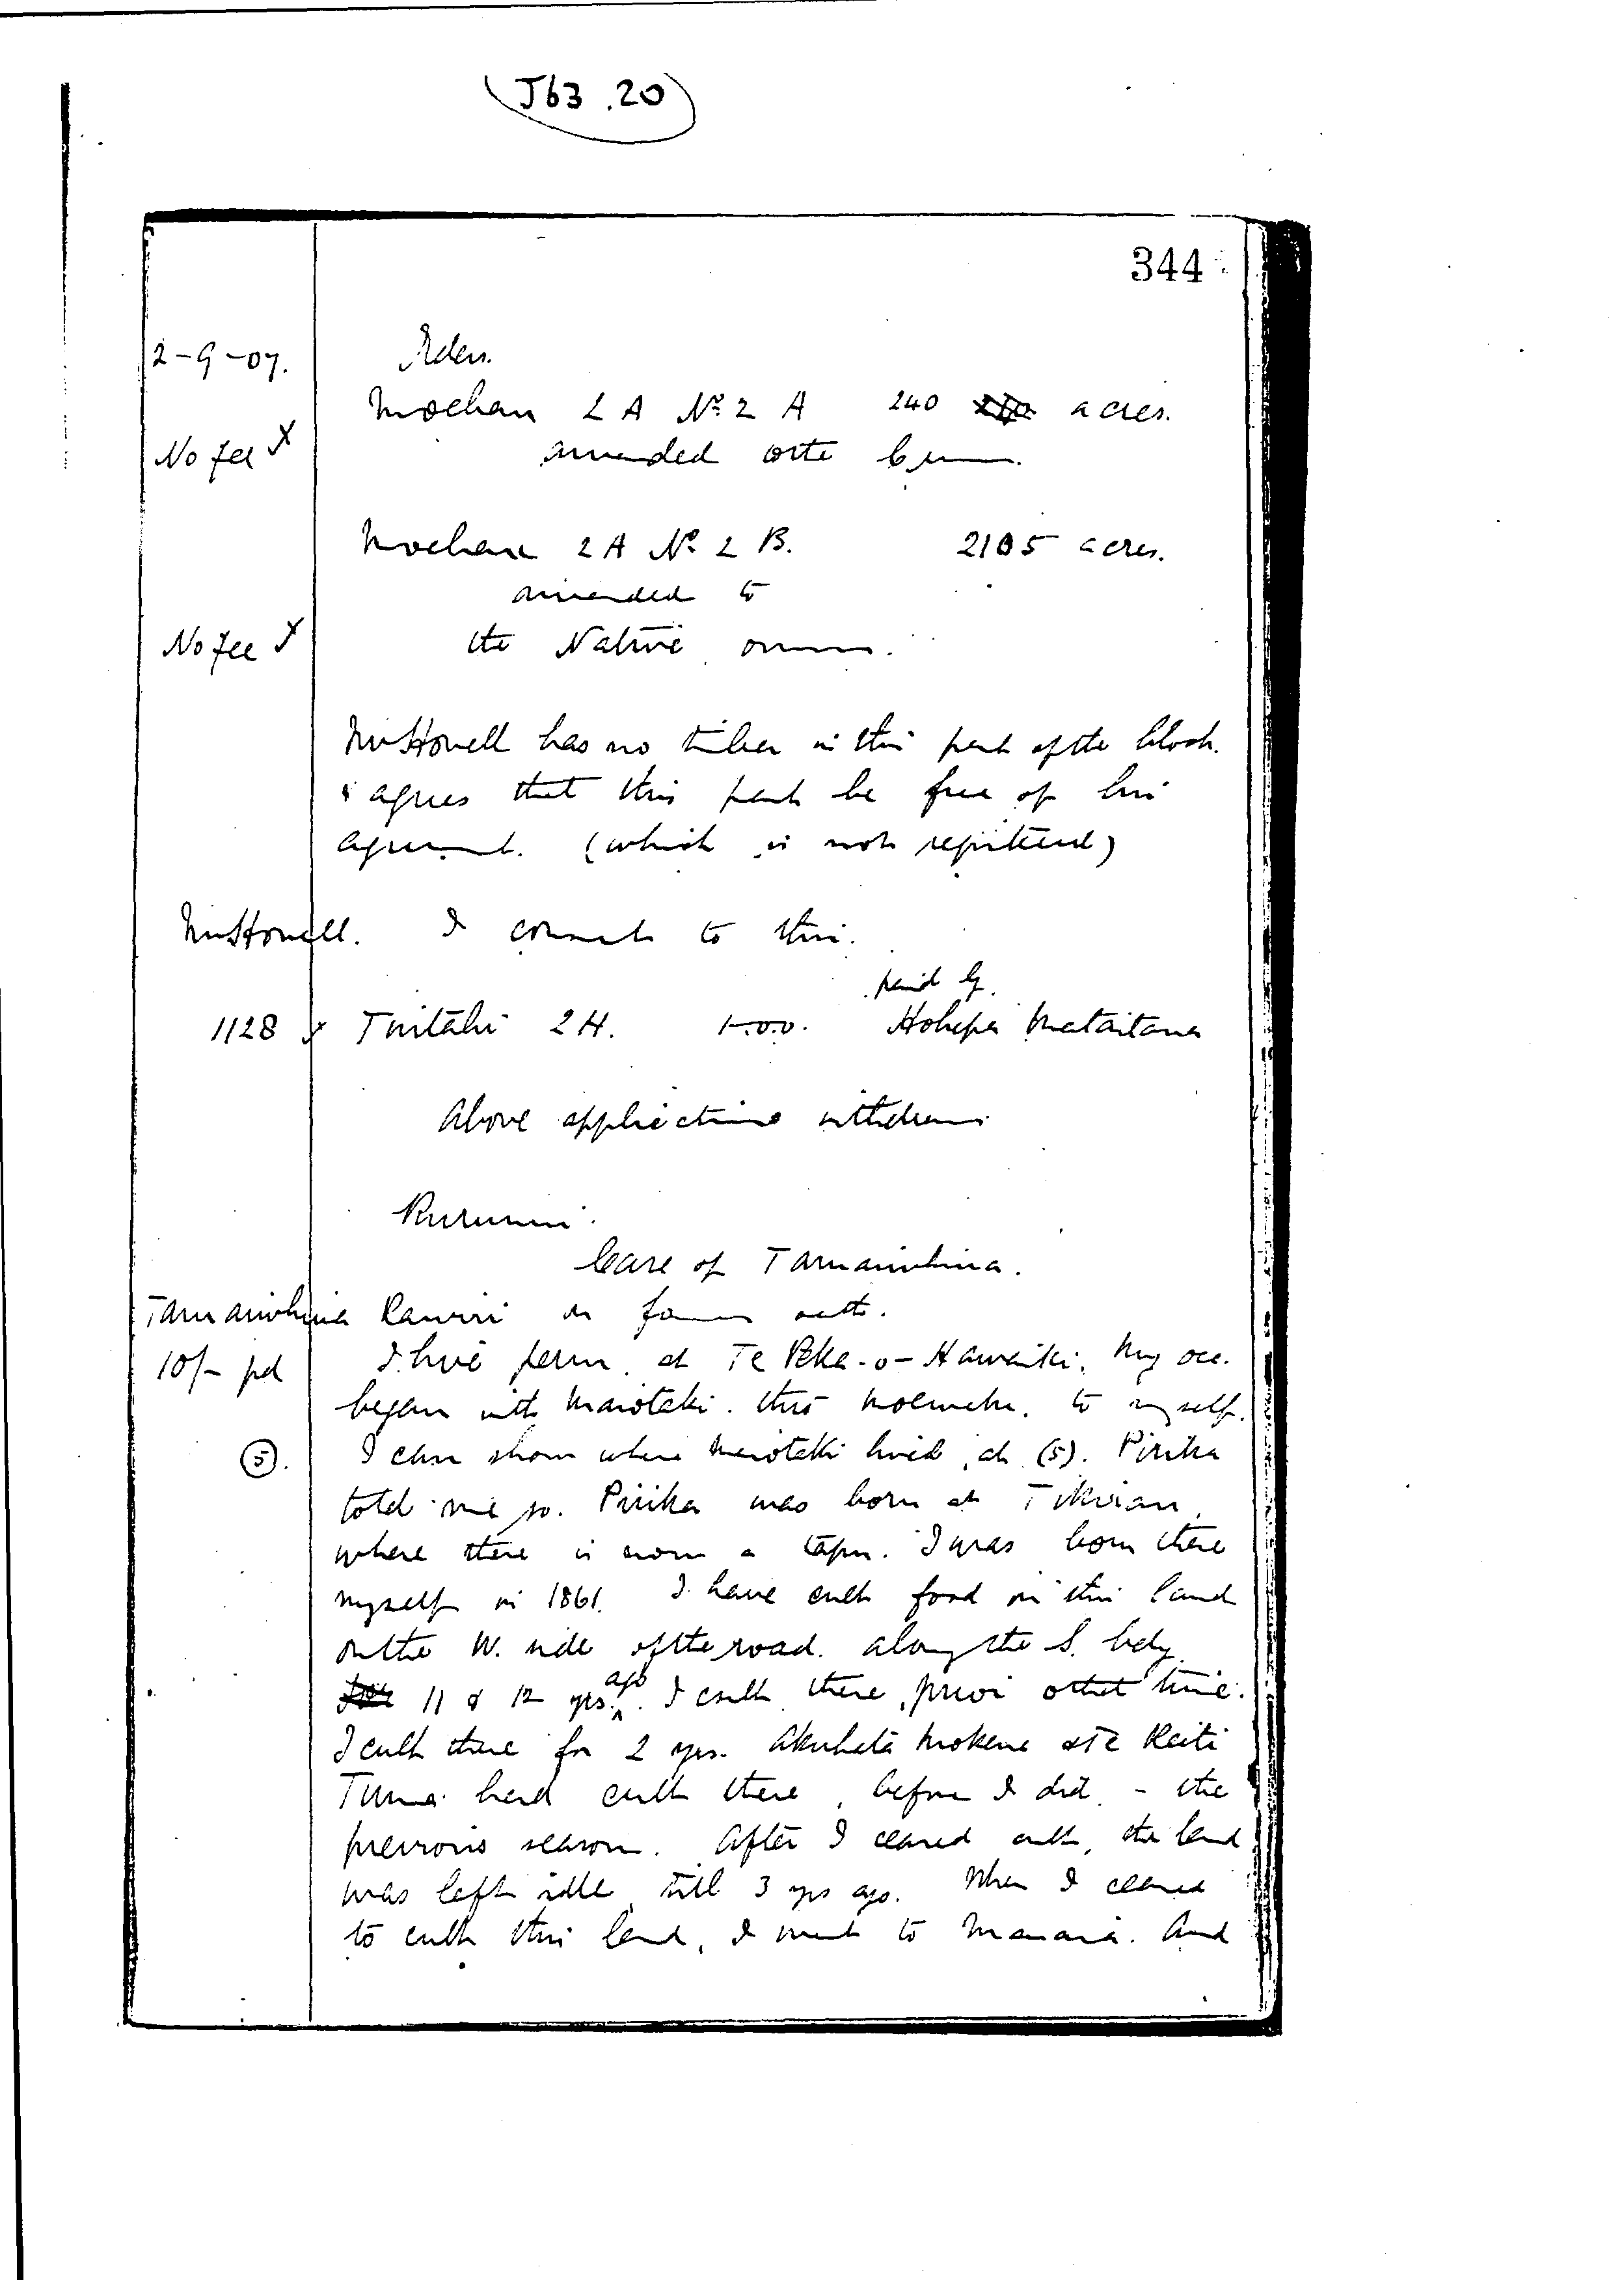 J63.20
344
2-9-07. Orders.
Moehau 2A No. 2A 240 acres.
No fee X awarded to the Crown.
Moehau 2A No. 2B. 2105 acres.
awarded to
No fee X the Native owners.
Mr Howell has no timber in this part of the block.
& agrees that this part be free of his
agreement. (which is not registered)
Mr Howell. I consent to this.
paid by
1128 x Tuitahi 2H. 1-0-0. Hohepa Mataitaua
Above applications withdrawn
Case of Tamaiwhina.
Tamaiwhina Rawiri on former oath.
10/- pd I live perm. at Te Peka-o-Hawaiki. My occ.
began with Marotaki. thro to myself.
(5). I can show where Marotaki lived, at (5). Pirika
told me so. Pirika was born at
where there is now a tapu. I was born there
myself in 1861. I have cult food on this land
on the W. side of the road. along the S. bdy
11 or 12 yrs ago. I cult there, prior to that time.
I cult there for 2 yrs. Akuhata Mokena & Te Keiti
Tuma had cult there, before I did - the
previous season. After I ceased cult, the land
was left idle till 3 yrs ago. When I ceased
to cult this land, I went to Manaia. And